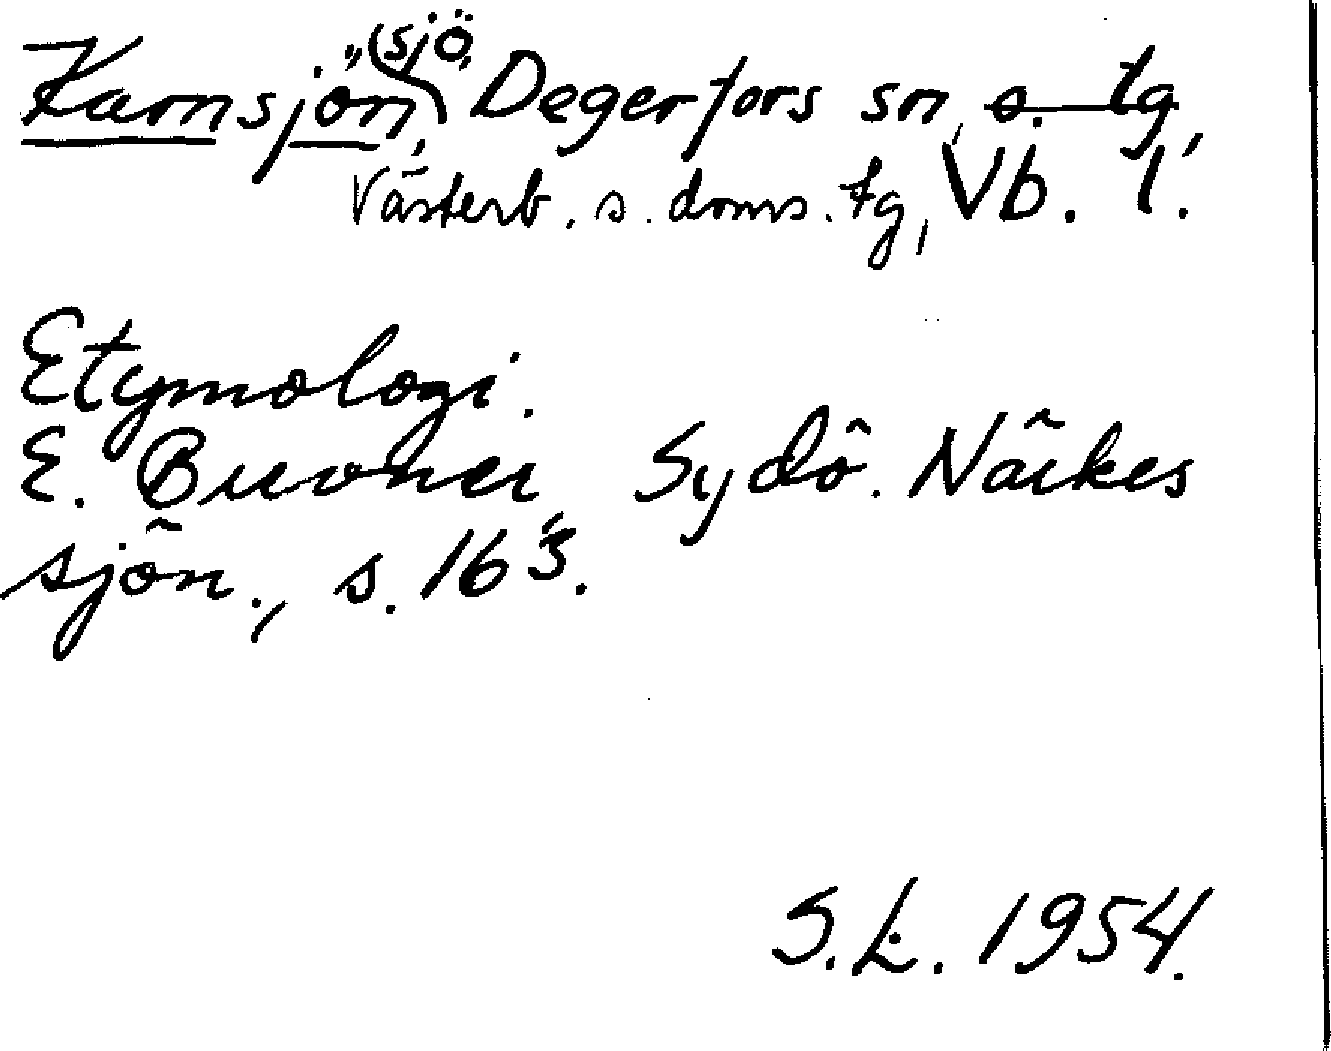 Karnsjön, "(sjö", Degerfors sn, s. tg,
Västerb. s. doms. tg, Vb. l.
Etymologi.
E. Buvner, Sydö. Närkes
sjön., s. 163.
S.L. 1954.